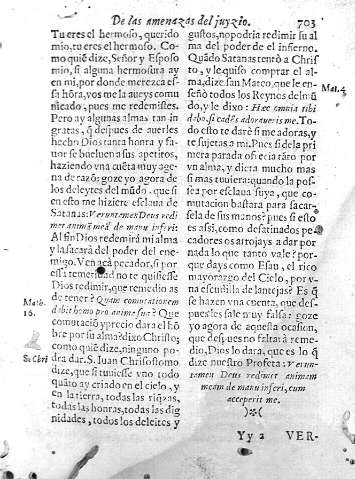 De las amenazas del juyzio. 703
Tu eres el hermoso, querido
mio, tu eres el hermoso. Co-
mo quiẽ dize, Señor y Esposo
mio, si alguna hermosura ay
en mi, por donde merezca es-
sa hõra, vos me la aueys comu
nicado, pues me redemistes.
Pero ay algunas almas tan in
gratas, q̃ despues de auerles
hecho Dios tanta honra y fa-
uor se bueluen a sus apetitos,
haziendo vna cuẽta muy age-
na de razõ: goze yo agora de
los deleytes del mũdo, que si
en esto me hiziere esclaua de
Satanas: Veruntamen Deus redi
met animã meã de manu inferi:
Al fin Dios redemirá mi alma
y la sacará del poder del ene-
migo. Ven acà pecador, si por
essa temeridad no te quisiesse
Dios redimir, que remedio as
de tener? Quam comutationem
dabit homo pro anima sua? Que
comutaciõ y precio dara el hõ
bre por su alma? dixo Christo;
como quiẽ dize, ninguno po-
dra dar. S. Juan Chrisostomo
dize, que si tuuiesse vno todo
quãto ay criado en el cielo, y
en la tierra, todas las riq̃zas,
todas las honras, todas las dig
nidades, todos los deleites y
Math.
16.
S. Chri
gustos, no podria redimir su al
ma del poder de el infierno.
Quãdo Satanas tentò a Chris
to, y le quiso comprar el al-
ma, dize san Marco, que le en-
señò todos los Reynos del mũ
do, y le dixo: Hæc omnia tibi
dabo, si cadẽs adoraueris me. To-
do esto te darè si me adoras, y
te sujetas a mi. Pues si de la pri
mera parada ofrecia tãto por
vn alma, y diera mucho mas
si mas tuuiera: quando la pos-
sea por esclaua suya, que co-
mutacion bastara para sacar-
sela de sus manos? pues si esto
es assi, como desatinados pe-
cadores os arrojays a dar por
nada lo que tanto vale? por-
que days como Esau, el rico
mayorazgo del Cielo, por v-
na escudilla de lantejas? Es q̃
se hazen vna cuenta, que des-
pues les sale muy falsa: goze
yo agora de aquesta ocasion,
que despues no faltarà reme-
dio, Dios lo darà, que es lo q̃
dize nuestro Profeta: Verun-
tamen Deus redimet animam
meam de manu inferi, cum
acceperit me.
Mat. 4
Yy 2 VER-